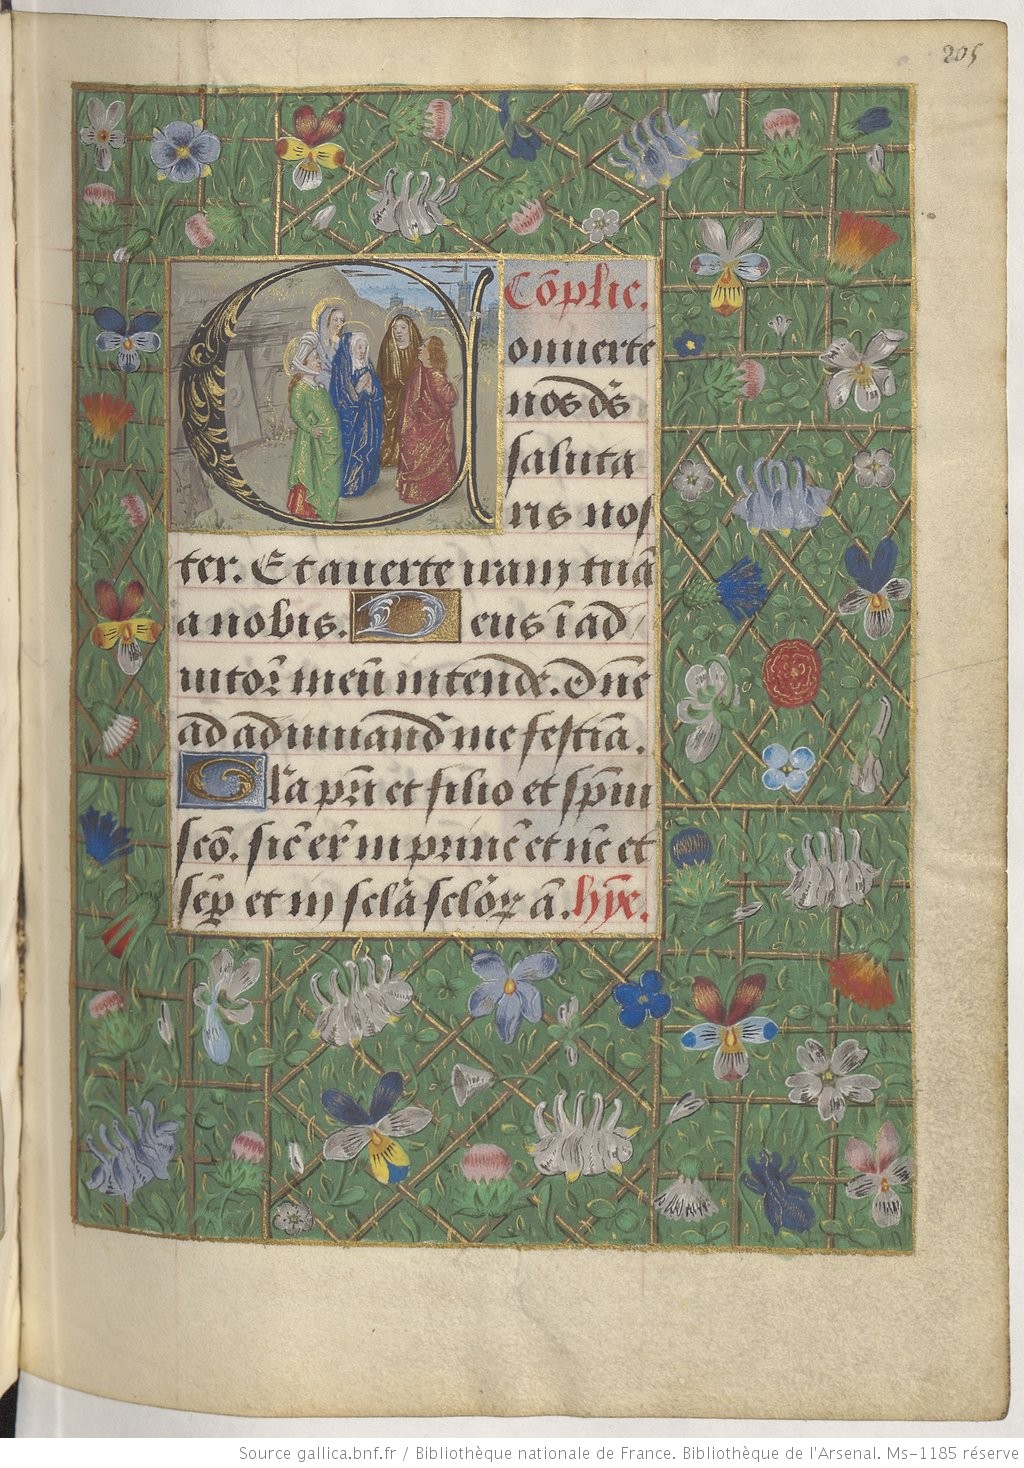 205
Cōplic̄.
Conuerte
nos ds̄
saluta
ris nos
ter. Et auerte iram tuā
a nobis. Deus ī ad
iutoꝛ̄ meū intende. Dn̄e
ad adiuuand̄ me festīa.
Gl̄ia pr̄i et filio et sp̄ui
sc̄o. sic̄ er̄ in princ̄ et nc̄ et
sēꝑ et in sc̄la sc̄loꝝ̄ ā. hȳē.
Source gallica.bnf.fr / Bibliothèque nationale de France. Bibliothèque de l'Arsenal. Ms-1185 réserve